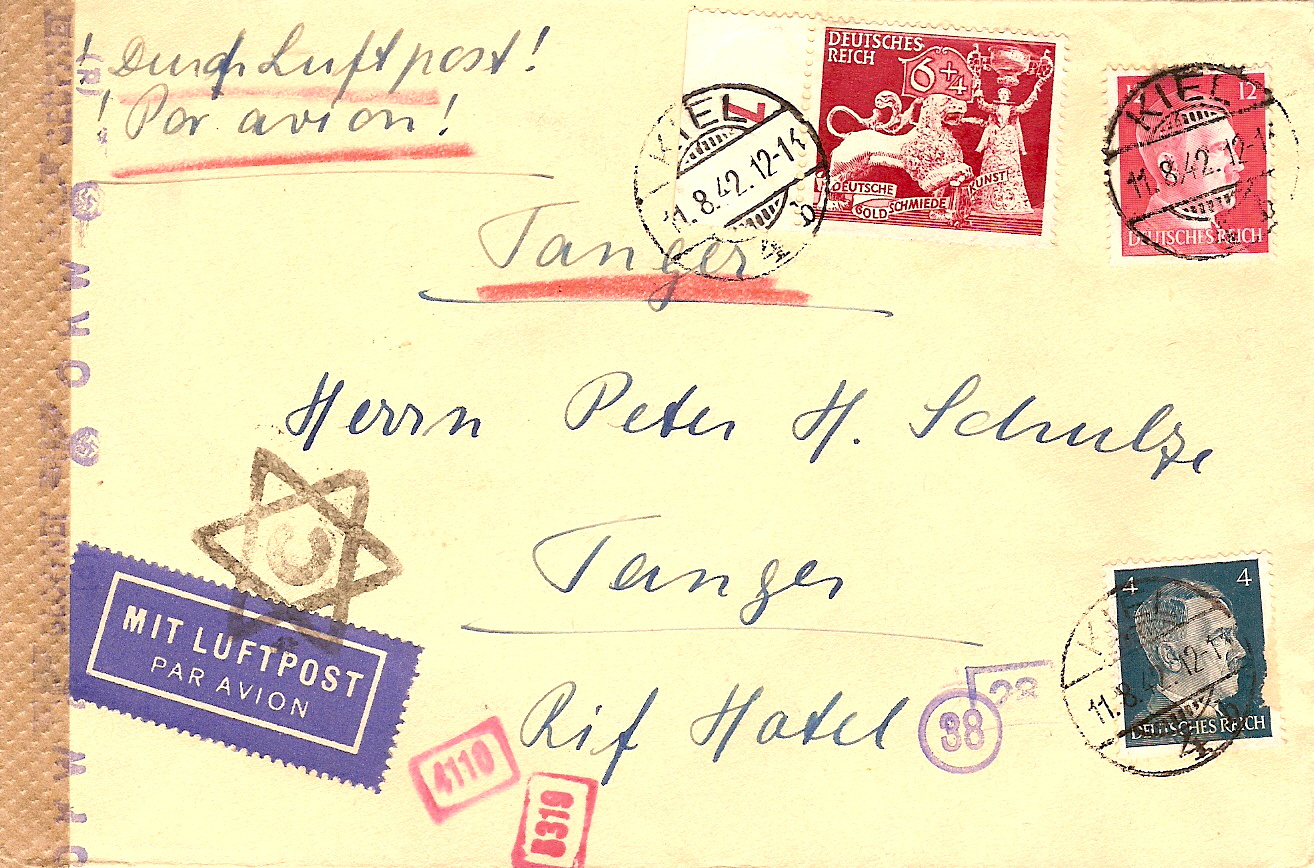 ! Durch Luftpost!
! Par avion!
DEUTSCHES
REICH
6+4
DEUTSCHE
GOLDSCHMIEDE
KUNST
KIEL
11.8.42.12-1
4
b
12
KIEL
11.8.42.12-1
DEUTSCHES REICH
Tanger
Herrn Peter H. Schulze
Tanger
Rif Hotel
MIT LUFTPOST
PAR AVION
4110
8319
38
23
4 4
KIEL
11.8.42.12-1
DEUTSCHES REICH
OKW